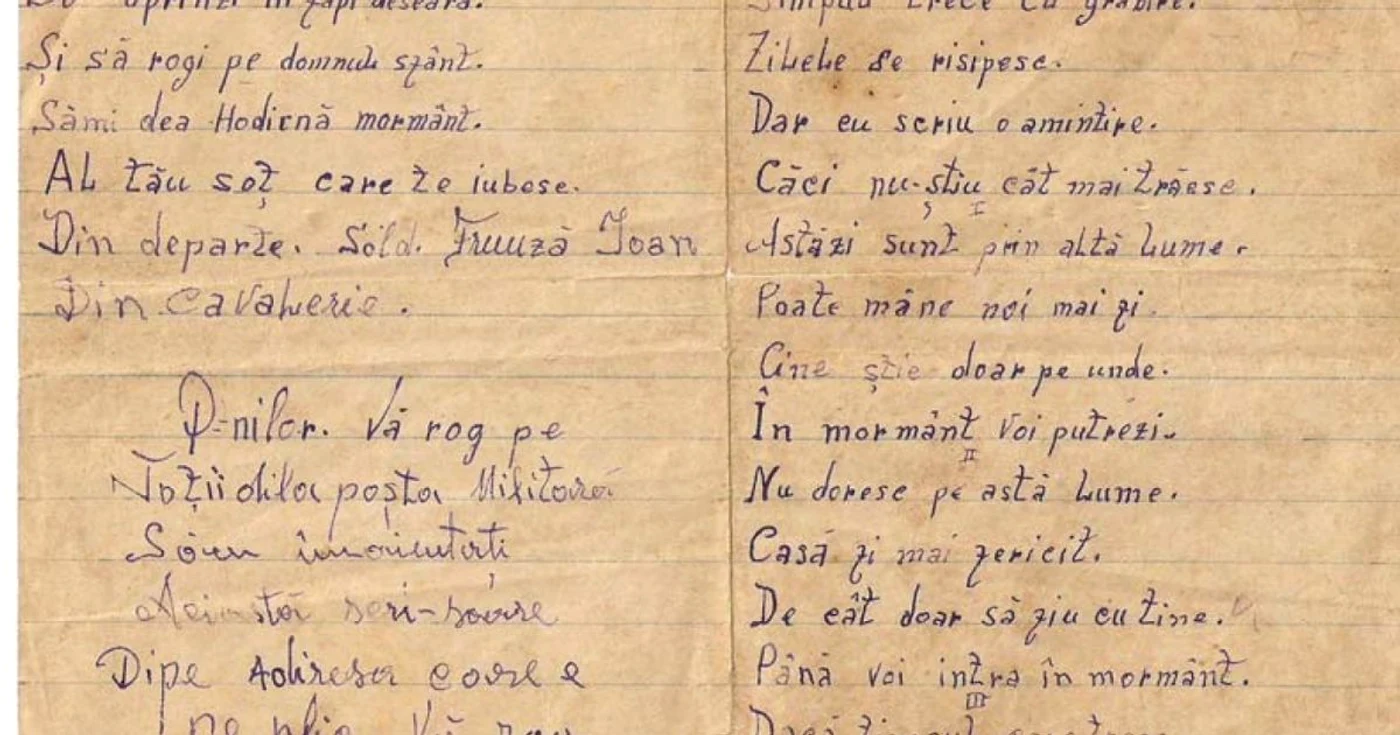 Și să rogi pe domnul sfânt.
Sămi dea Hodicnă mormânt.
Al tău soț care te iubesc.
Din departe. Sold. Ioan
Din Cavalerie.
D-nilor. Vă rog pe
Toții dila poșta Militară
Aciastă scri-soare
Dipe Adiresa care e
pe plic Vă rog
Timpul trece cu grăbire.
Zilele se risipesc.
Dar eu scriu o amintire.
Căci nu-știu cât mai trăesc.
I
Astăzi sunt prin altă lume.
Poate mâne noi mai fi.
Cine știe doar pe unde.
În mormânt voi putrezi.
II
Nu doresc pe astă lume.
Casă fi mai fericit.
De cât doar să fiu cu tine.
Până voi intra în mormânt.
III
Dacă timpul